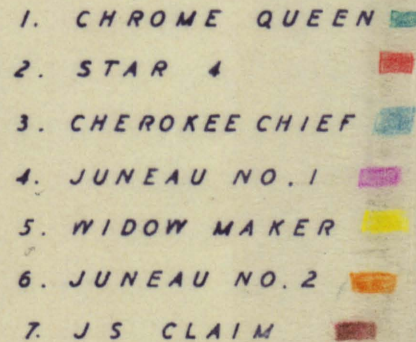 1. CHROME QUEEN
2. STAR 4
3. CHEROKEE CHIEF
4. JUNEAU NO. 1
5. WIDOW MAKER
6. JUNEAU NO. 2
7. J S CLAIM